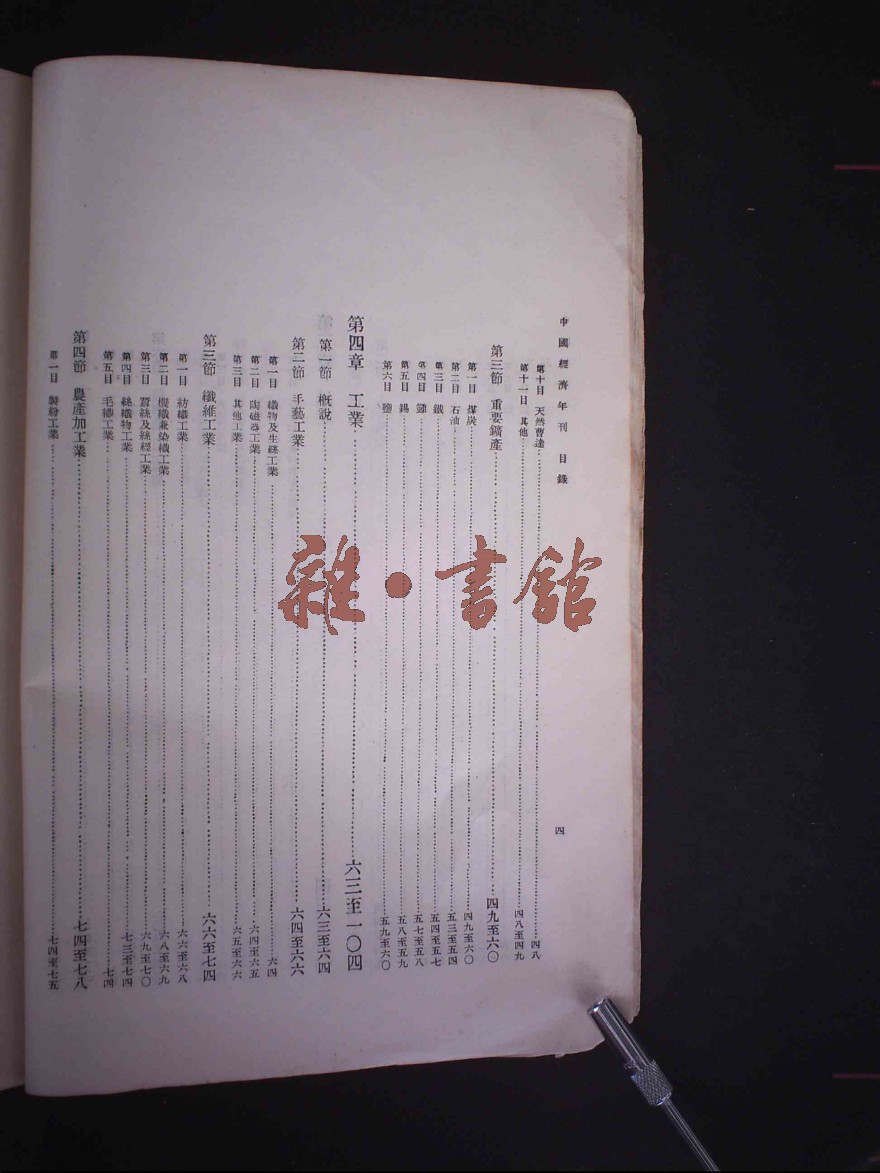 中國經濟年刊 目錄
四
第十目 天然曹達 四八
第十一目 其他 四八至四九
第三節 重要鑛產 四九至六〇
第一目 煤炭 四九至六〇
第二目 石油 五三至五四
第三目 鐵 五四至五七
第四目 五七至五八
第五目 錫 五八至五九
第六目 五九至六〇
第四章 工業 六三至一〇四
第一節 概說 六三至六四
第二節 手藝工業 六四至六六
第一目 織物及生絲工業 六四
第二目 陶磁器工業 六四至六五
第三目 其他工業 六五至六六
第三節 纖維工業 六六至七四
第一目 紡織工業 六六至六八
第二目 機織兼染織工業 六八至六九
第三目 蠶絲及絲經工業 六九至七〇
第四目 絲織物工業 七三至七四
第五目 毛織工業 七四
第四節 農產加工業 七四至七八
第一目 製粉工業 七四至七五
雜·書館